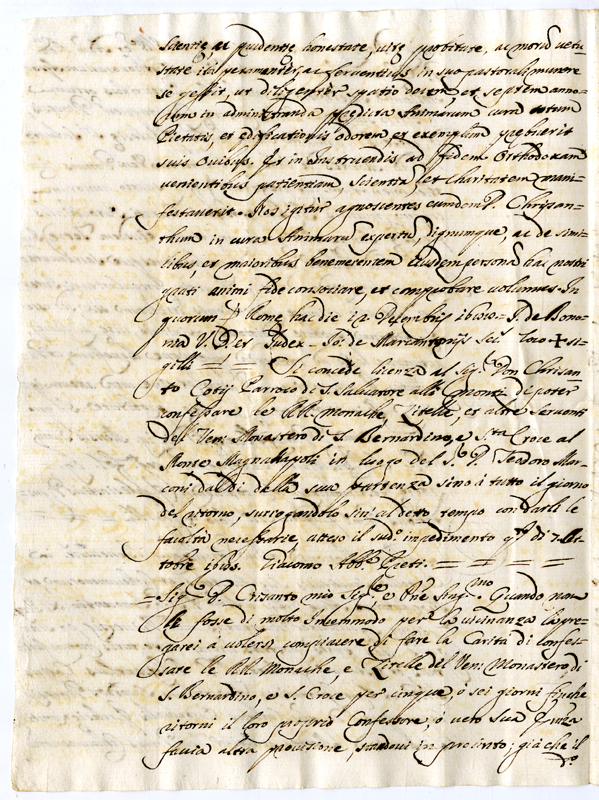 scientię, ac prudentię, honestate, vitę probitate, ac morum vetu-
state ita peramanter, ac ferventius in suo pastorali munere
se gessit, ut diligenter spatio decem, et septem anno-
rum in administranda prędicta Animarum cura totum
Pietatis, et ędificationis odorem, et exemplum prębuerit
suis Ovibus. Et in instruendis ad fidem Orthodoxam
venientibus patientiam, scientiam, et charitatem mani-
festaverit. Nos igitur agnoscentes eumdem P. Chrisan-
thum in cura Animarum expertum, dignumque, ac de simi-
libus, et maioribus benemerentem Eiusdem personam hac nostri
grati animi fide consociare, et comprobare volumus. In
quorum Romę hac die 12 Decembris 1680. P. de Bono-
nia V. Ger. Judex. Jo: de Marcantonijs Loco + si-
gilli Si concede licenza al Sig. Don Chrisan-
to Cotij Parroco di S. Salvatore alli Monti di poter
confessare le RR. Monache, Zitelle, et altre serventi
dell' Ven: Monastero di S. Bernardino, e S.ta Croce al
Monte Magnanapoli in luogo del S. P. Teodoro Mar-
coni dal dì della sua partenza sino à tutto il giorno
del ritorno, surrogandolo sin' al detto tempo con darli le
facoltà necessarie, atteso il sud.o impedimento dì 7 Ot-
tobre 1680. Giacomo Abb.e
Sig.r P. Crizanto mio Sig.re e P.ne Sing.mo Quando non
le fosse di molto Incommodo per la vicinanza la pre-
garei à volersi compiacere di fare la Carità di Confes-
sare le RR. Monache, e Zitelle del Ven: Monastero di
S. Bernardino, e S. Croce per cinque, ò sei giorni finche
ritorni il loro proprio Confessore, ò vero Sua Em.za
faccia altra provisione, standovi in procinto; già che il